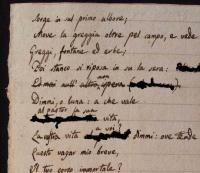 Sorge in sul primo albore;
Move la greggia oltre pel campo, e vede
Greggi, fontane ed erbe;
Poi stanco si riposa in su la sera:
non
Dimmi, o luna: a che vale
al pastor la sua
vita,
a voi?
La vostra vita Dimmi: ove tende
Questo vagar mio breve,
Il tuo corso immortale?